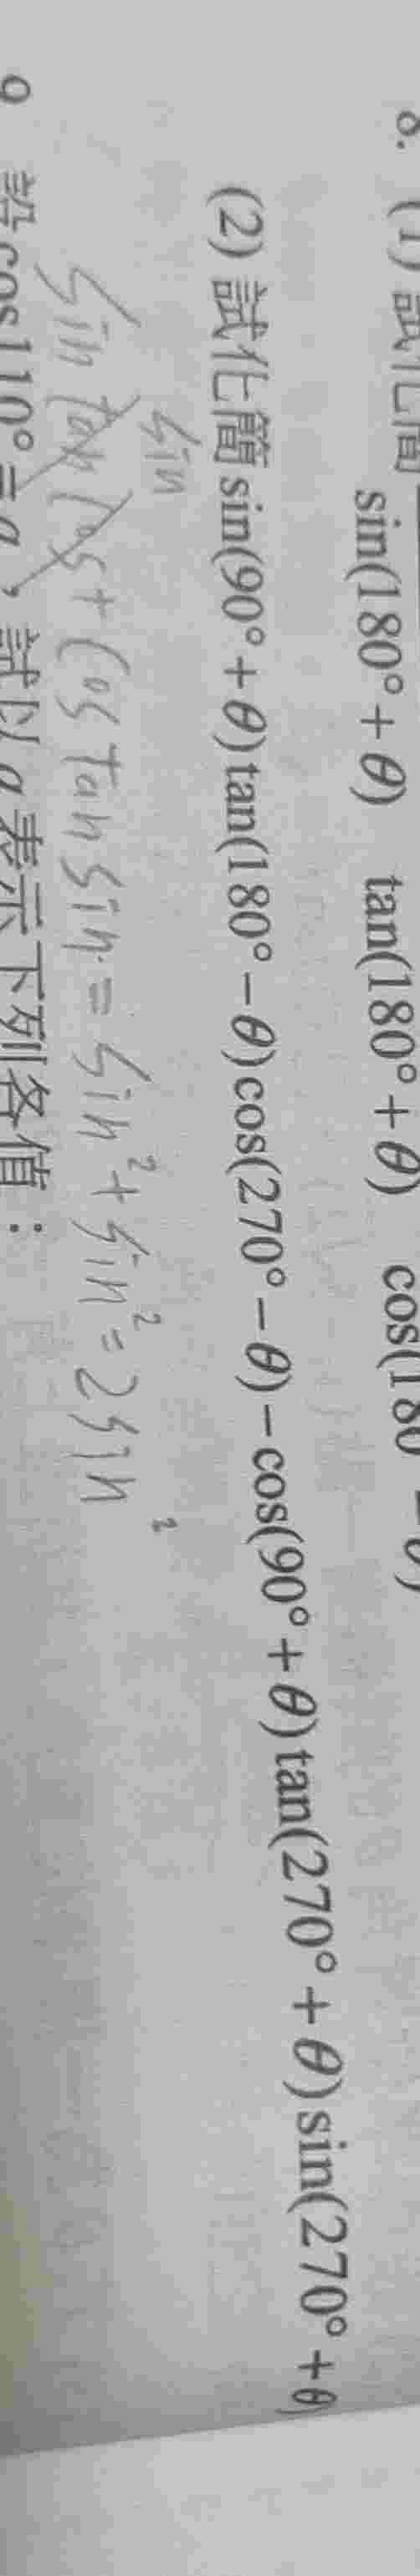 8. (1) 試化簡
sin(180°+θ) tan(180°+θ) cos(180°-θ)
(2) 試化簡sin(90°+θ)tan(180°-θ)cos(270°-θ)-cos(90°+θ)tan(270°+θ)sin(270°+θ)
sin
sin tan cos + cos tan sin = sin² + sin² = 2sin²
9 設cos110°=a，試以a表示下列各值：